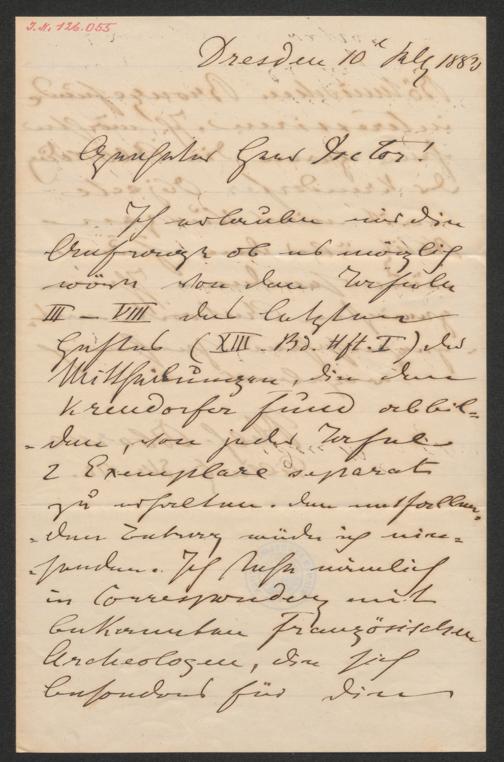 I.N. 126.055
Dresden 10t July 1883
Geehrter Herr Doctor!
Ich erlaube mir die
Anfrage ob es möglich
wäre von den Tafeln
III – VIII des letzten
Heftes (XIII. Bd. Hft. I) der
Mittheilungen, die den
Krendorfer Fund abbil=
=den, von jeder Tafel
2 Exemplare separat
zu erhalten. Den entfallen=
=den Betrag würde ich ein=
=senden. Ich stehe nämlich
in Correspondenz mit
bekannten Französischen
Archeologen, die sich
besonders für die